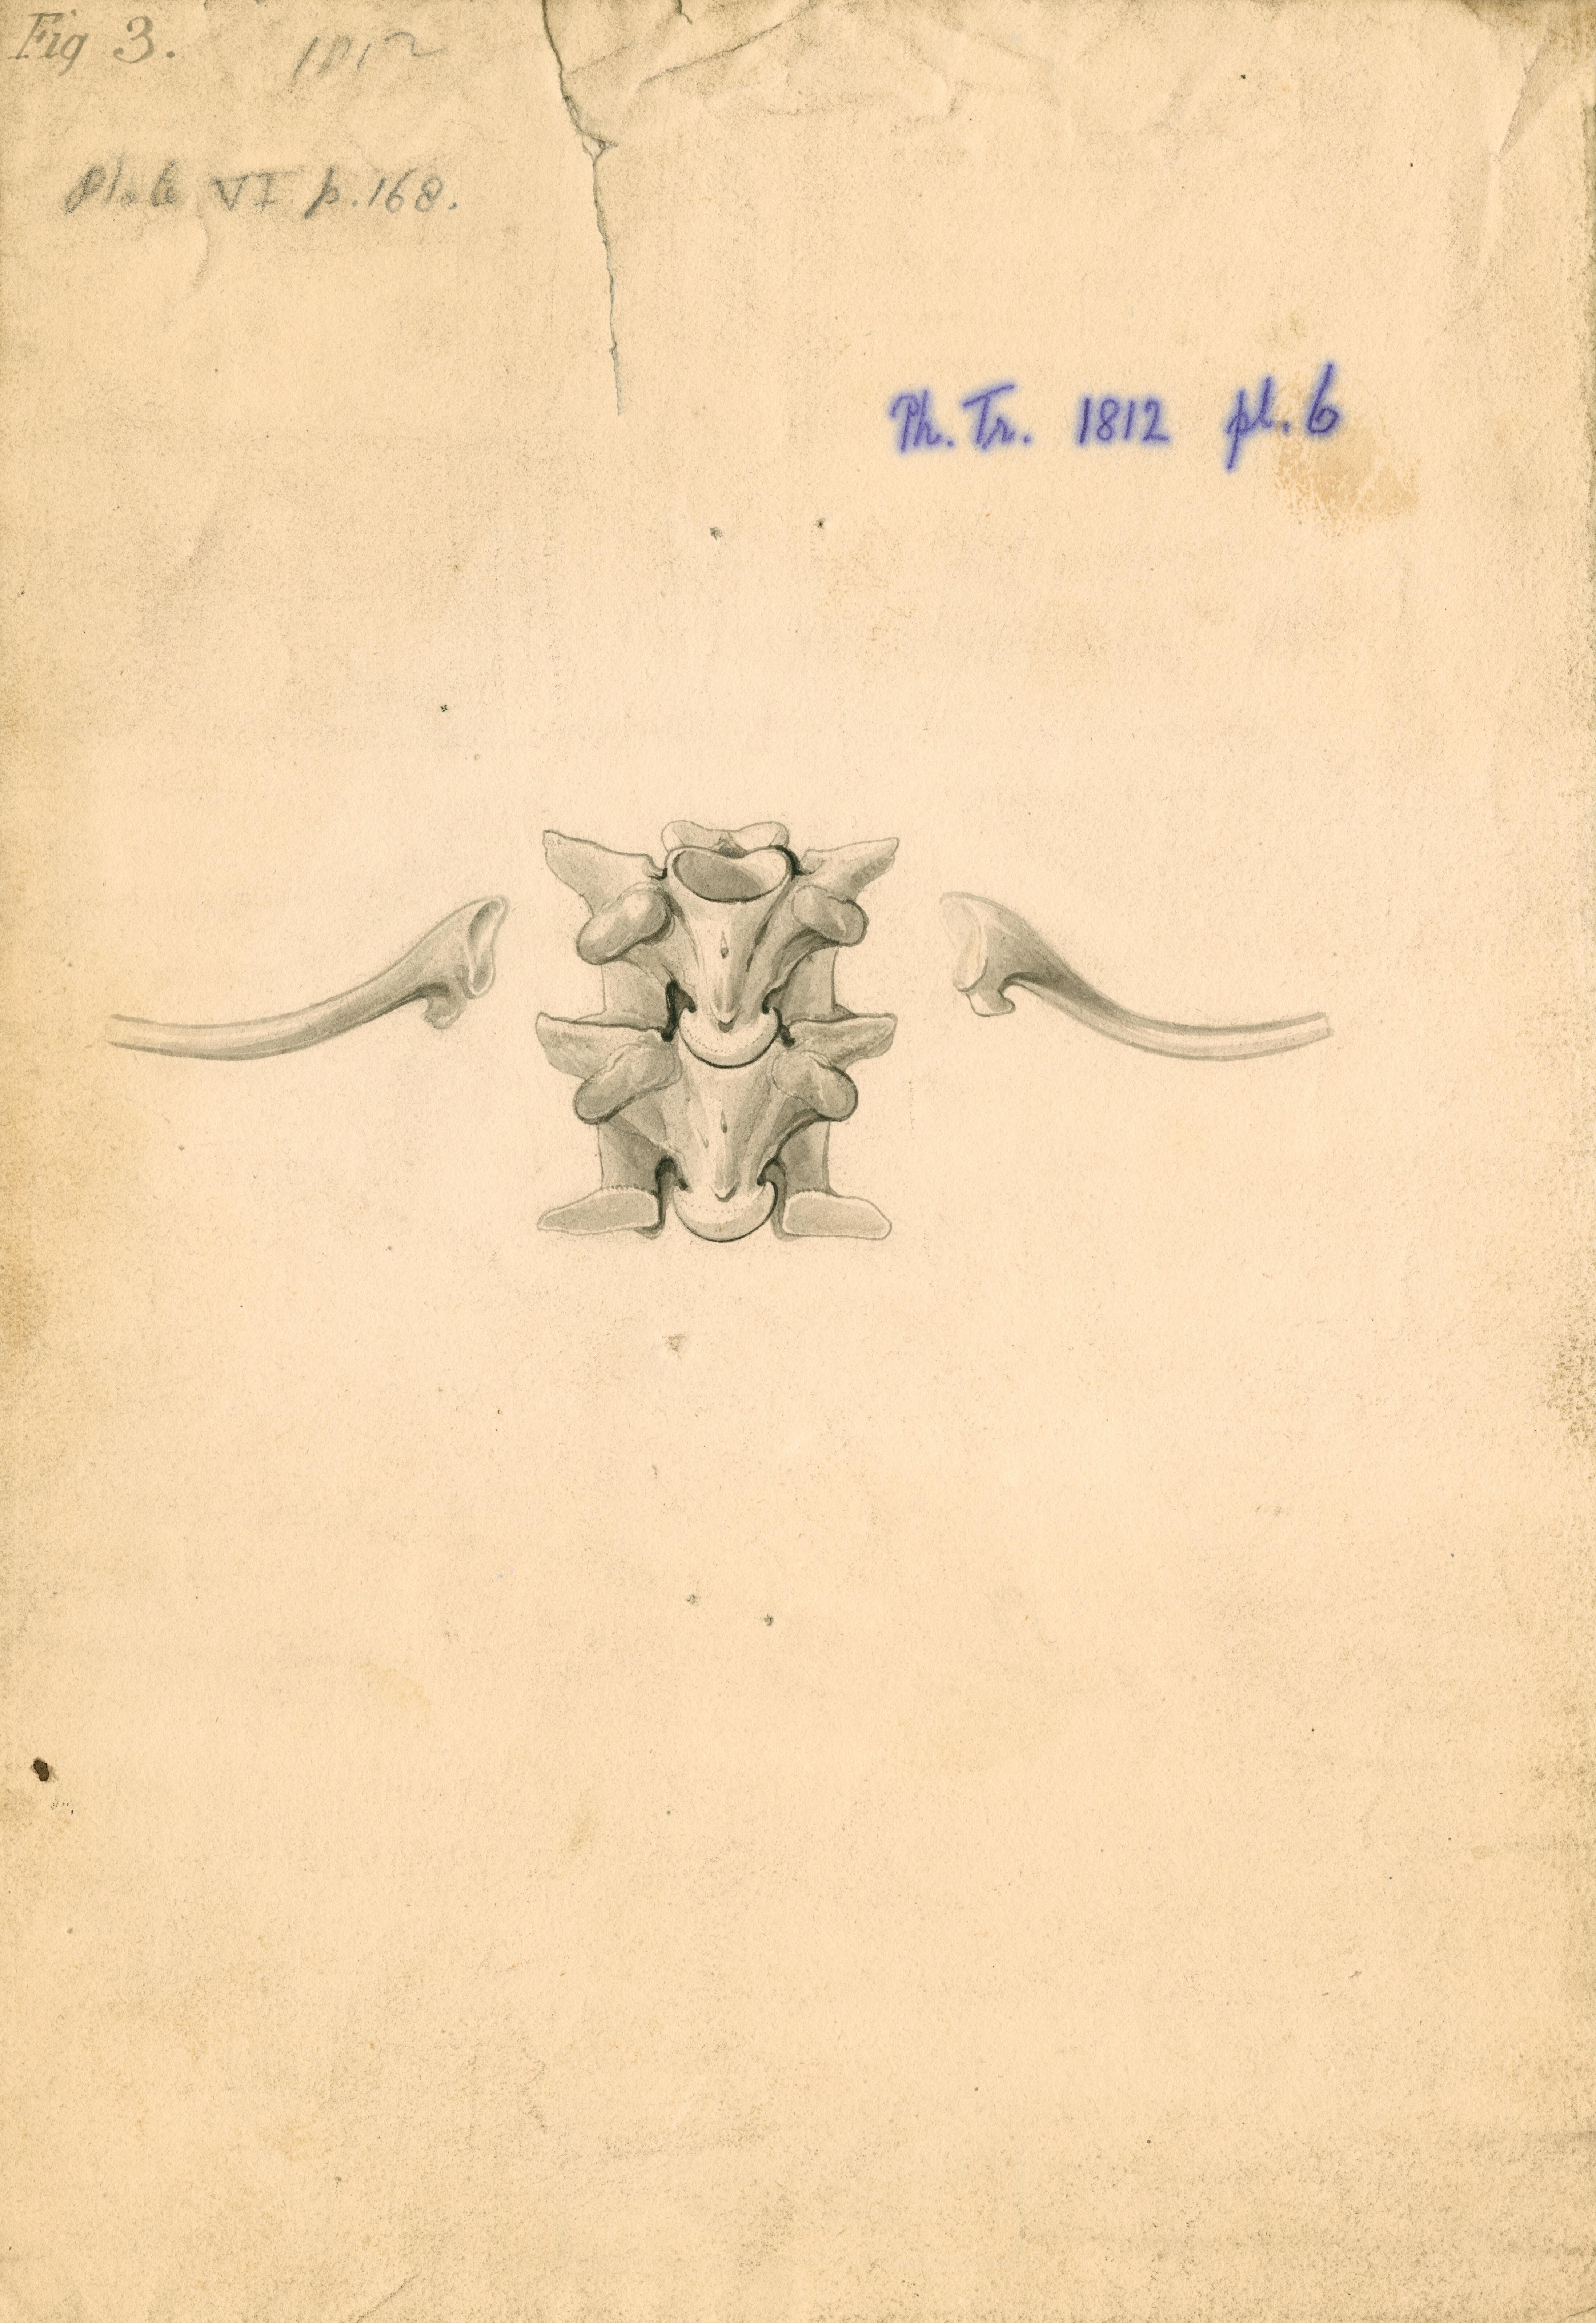 Fig 3. 1812
Plate VI p.168.
Ph. Tr. 1812 pl. 6